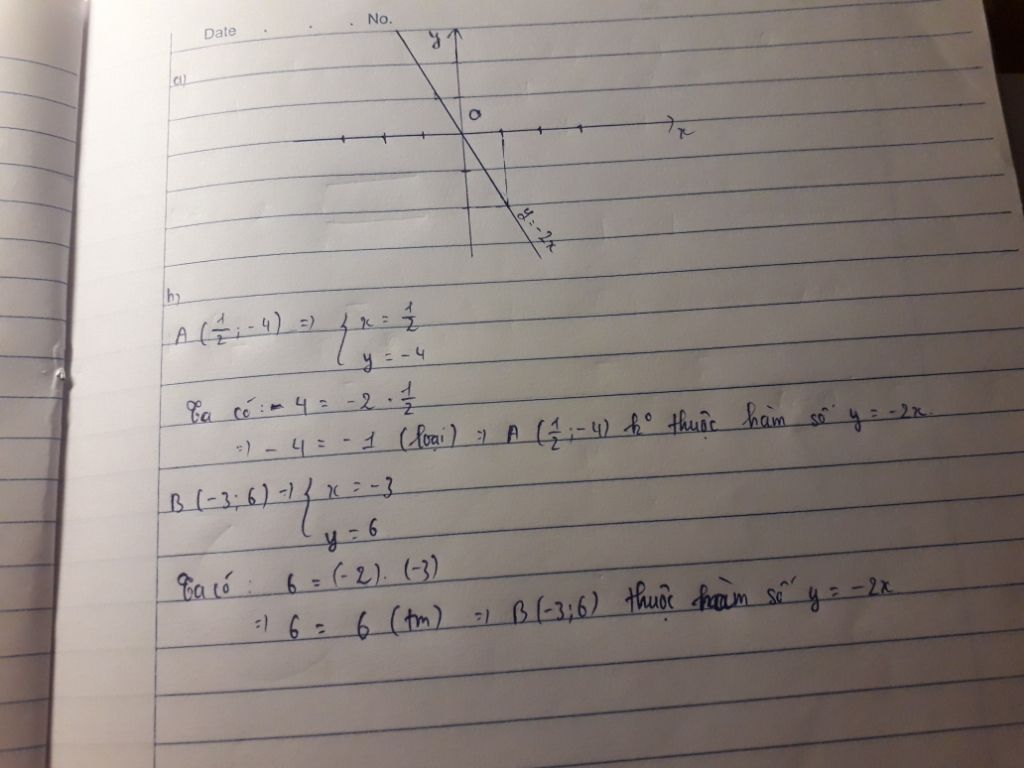 Date . . . No.
a)
y
O
x
y = -2x
b)
A (1/2; -4) => { x = 1/2
y = -4
Ta có: -4 = -2 . 1/2
=> -4 = -1 (loại) => A (1/2; -4) k° thuộc hàm số y = -2x.
B (-3; 6) => { x = -3
y = 6
Ta có: 6 = (-2). (-3)
=> 6 = 6 (tm) => B(-3; 6) thuộc hàm số y = -2x.